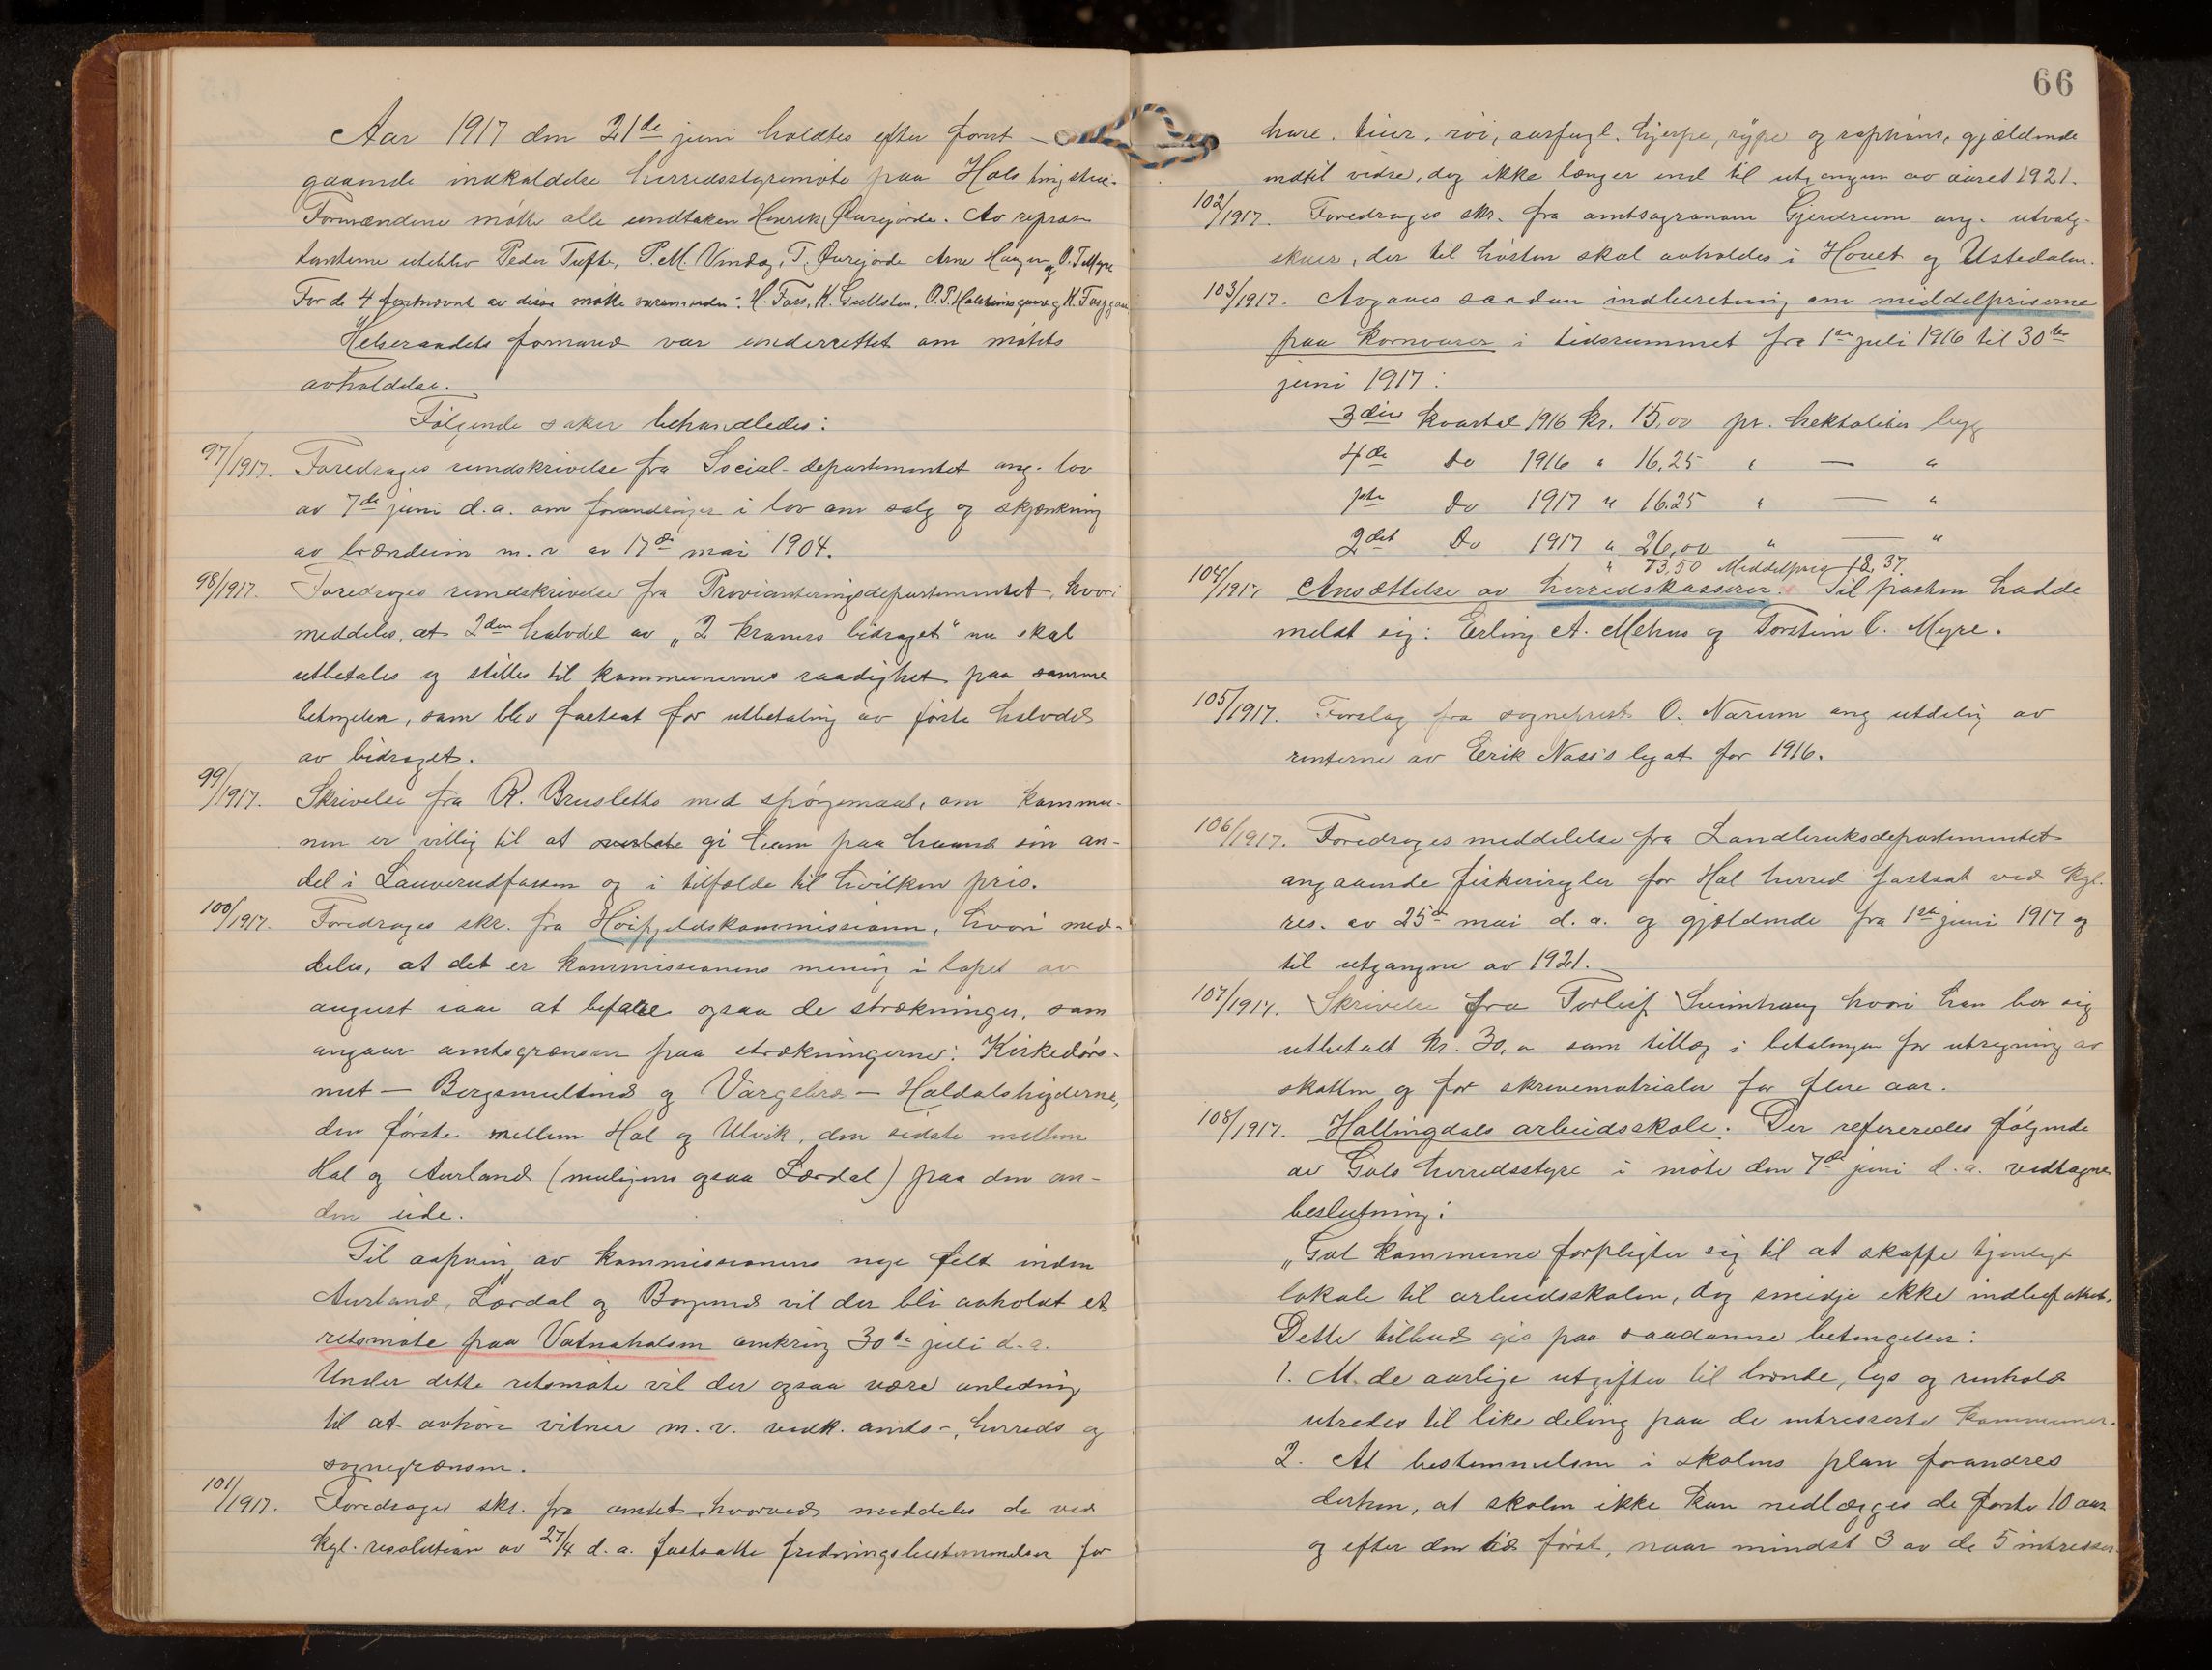 Aar 1917 den 21de juni holdtes efter forut-
gaaende indkaldelse herredsstyremøte paa Hols tingstue.
Formændene møtte alle undtaken Henrik Øvrejorde. Av repræsen
tanterne uteblev Peder Tufte, P. M. Vindeg, T. Øvrejorde Arne Haugen og O. T. Myre
For de 4 førstnævnt av disse møtte varamænden: H. Foss, K. Gullsten, O.P. Holsteinsgaard og K.
Helseraadets formand var underrettet om møtets
avholdelse.
Følgende saker behandledes:
97/1917. Foredroges rundskrivelse fra Social-departementet ang. lov
av 7de juni d.a. om forandringer i lov om salg og skjænkning
av brændevin m.v. av 17de mai 1904.
98/1917. Foredroges rundskrivelse fra Provianteringsdepartementet, hvori
meddeles, at 2den halvdel av „2 kroners bidraget" nu skal
utbetales og stilles til kommunernes raadighet paa samme
betingelser, som blev fastsat for utbetaling av første halvdel
av bidraget.
99/1917. Skrivelse fra R. Brusletto med spørgsmaal, om kommu-
nen er villig til at overlate gi ham paa haand sin an-
del i Lauverudfossen og i tilfælde til hvilken pris.
100/1917. Foredroges skr. fra Høifjeldskommissionen, hvori med-
deles, at det er kommissionens mening i løpet av
august iaar at befare ogsaa de strækninger, som
angaar amtsgrænsen paa strækningerne: Kirkedørs-
nut - Bergsmultind og Vargebræ - Holdalshøgderne,
den første mellem Hol og Ulvik, den sidste mellem
Hol og Aurland (muligens ogsaa Lærdal) paa den an-
den side.
Til aapning av kommissionens nye felt inden
Aurland, Lærdal og Borgund vil der bli avholdt et
retsmøte paa Vatnahalsen omkring 30te juli d.a.
Under dette retsmøte vil der ogsaa være anledning
til at avhøre vitner m.v. vedk. amts-, herreds og
sognegrænsen.
101/1917. Foredroges skr. fra amtet hvorved meddeles de ved
kgl. resolution av 27/4 d.a. fastsatte fredningsbestemmelser for
66
hare, tiur, røi, aarfugl, hjerpe, rype og raphøns, gjældende
indtil videre, dog ikke længer end til utgangen av aaret 1921.
102/1917. Foredroges skr. fra amtsagronom Gjerdrum ang. utvalg-
skuer, der til høsten skal avholdes i Hovet og Ustedalen.
103/1917. Avgaves saadan indberetning om middelpriserne
paa kornvarer i tidsrummet fra 1ste juli 1916 til 30te
juni 1917:
3die kvartal 1916 kr. 15,00 pr. hektoliter byg
4de Do 1916 " 16.25 " — "
1ste Do 1917 " 16.25 " — "
2det Do 1917 " 26,00 " — "
" 73,50 Middelpris 18.37
104/1917. Ansættelse av herredskasserer. Til posten hadde
meldt sig: Erling A. Mehus og Torstein O. Myre.
105/1917. Forslag fra sogneprest O. Narum ang utdeling av
renterne av Erik Næss's legat for 1916.
106/1917. Foredroges meddelelse fra Landbruksdepartementet
angaaende fiskeriregler for Hol herred fastsat ved kgl.
res. av 25de mai d.a. og gjældende fra 1ste juni 1917 og
til utgangen av 1921.
107/1917. Skrivelse fra Torleif Sviinhaug hvori han ber sig
utbetalt kr. 30,- som tillæg i betalingen for utregning av
skatten og for skrivematrialer for flere aar.
108/1917. Hallingdals arbeidsskole. Der refereredes følgende
av Gols herredsstyre i møte den 7de juni d.a. vedtagne
beslutning:
„Gol kommune forpligter sig til at skaffe tjenligt
lokale til arbeidsskolen, dog smidje ikke indbefattet.
Dette tilbud gis paa saadanne betingelser:
1. At de aarlige utgifter til brænde, lys og renhold
utredes til like deling paa de intresserte kommuner.
2. At bestemmelsen i skolens plan forandres
derhen, at skolen ikke kan nedlægges de første 10 aar
og efter den tid først, naar mindst 3 av de 5 intresser-